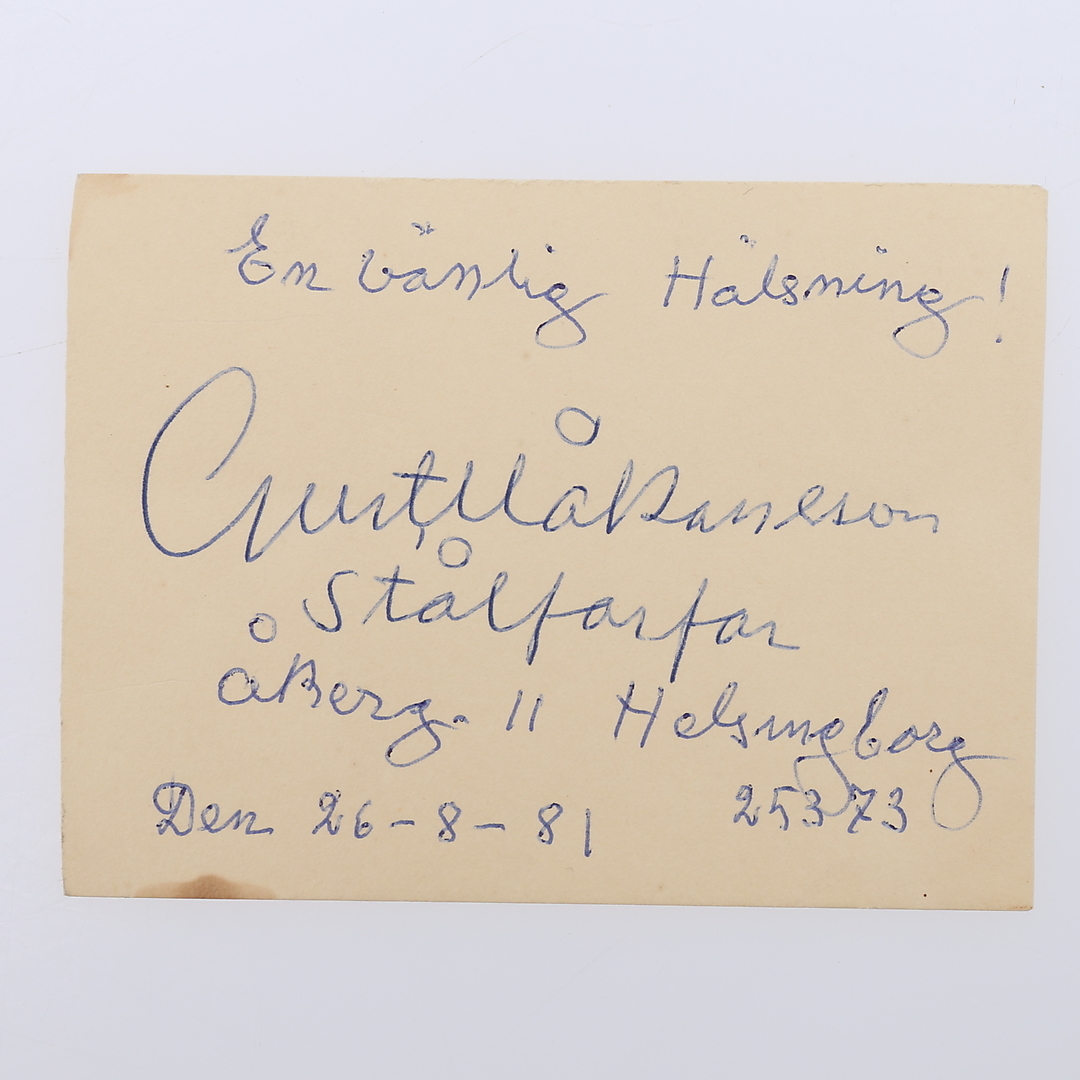 En vänlig Hälsning!
Gust Håkansson
Stålfarfar
åkerg. 11 Helsingborg
Den 26-8-81 25373